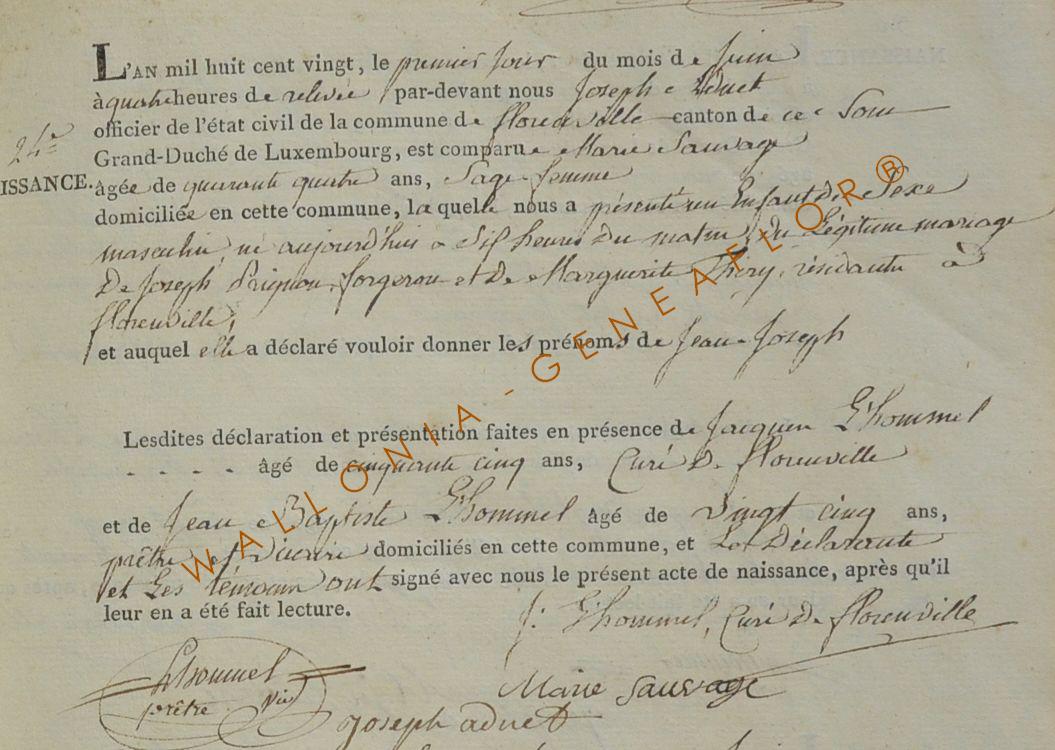 L'AN mil huit cent vingt, le premier jour du mois de juin
à quatre heures de relivée par-devant nous Joseph Aduet
officier de l'état civil de la commune de florenville canton de ce Nom
24e
ISSANCE.
Grand-Duché de Luxembourg, est comparue Marie Sauvage
âgée de quarante quatre ans, Sage femme
domiciliée en cette commune, la quelle nous a présenté un Enfant du Sexe
masculin, né aujourd'huis a Six heures du matin, du Légitime mariage
De Joseph forgeron et De Marguerite Thiry, résidants à
florenville,
et auquel elle a déclaré vouloir donner les prénoms de Jean Joseph
Lesdites déclaration et présentation faites en présence de Jacques L'hommel
- - - - âgé de cinquante cinq ans, Curé De florenville
et de Jean Baptiste L'hommel âgé de vingt cinq ans,
prêtre et vicaire domiciliés en cette commune, et La Déclarante
et Les témoins ont signé avec nous le présent acte de naissance, après qu'il
leur en a été fait lecture.
J: L'hommel, Curé De florenville
Lhommel
prêtre Vic
Marie sauvage
joseph aduet
WALLONIA-GENEAFLOR®